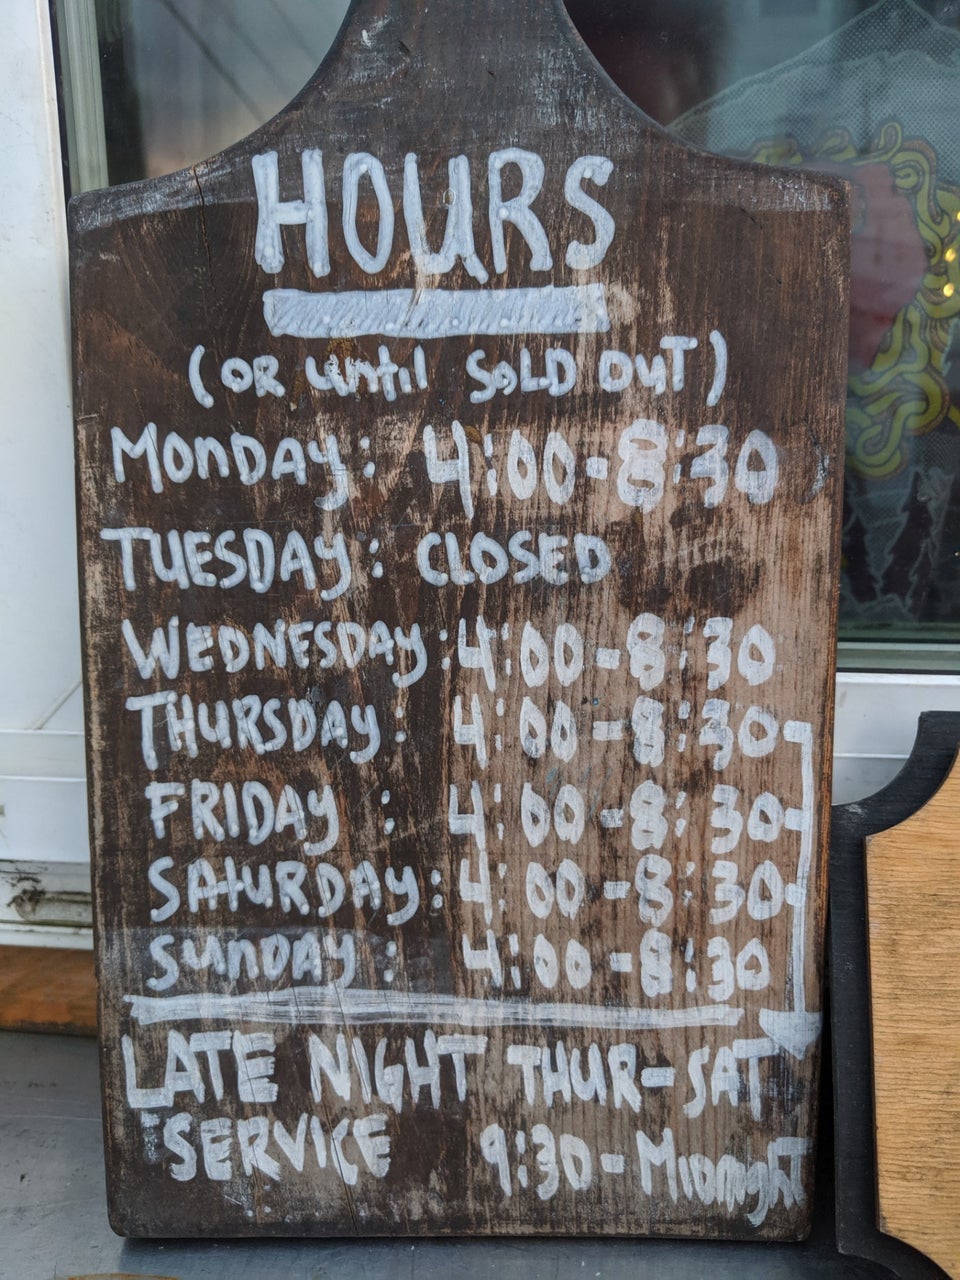 HOURS
(OR until SOLD OUT)
MONDAY: 4:00-8:30
TUESDAY: CLOSED
WEDNESDAY: 4:00-8:30
THURSDAY: 4:00-8:30
FRIDAY : 4:00-8:30
SATURDAY: 4:00-8:30
SUNDAY: 4:00-8:30
LATE NIGHT THUR-SAT
SERVICE 9:30-Midnight